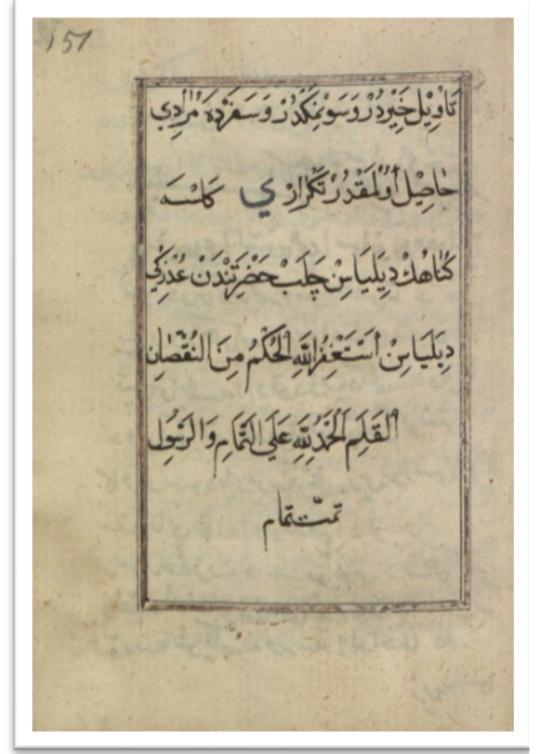 151
تَاوِيلْ خَيْرْدُرْ وَسَوِنمِكْدُرْ وَسَفَرْدَه مُرَادِي
حَاصِلْ اُولْمَقْدُرْ تَكْرَارْ ي كَلسَه
كُنَاهِكْ دِيلِيَاسِنْ چَلَبْ حَضْرَتِنْدَنْ عُذْرِكِي
دِيلِيَاسِنْ اَسْتَغْفِرُ اللّٰهَ الْحُكْمُ مِنَ النُّقْصَانِ
الْقَلَمِ اَلْحَمْدُ لِلّٰهِ عَلَي التَّمَامِ وَالرَّسُولِ
تمّت تمام